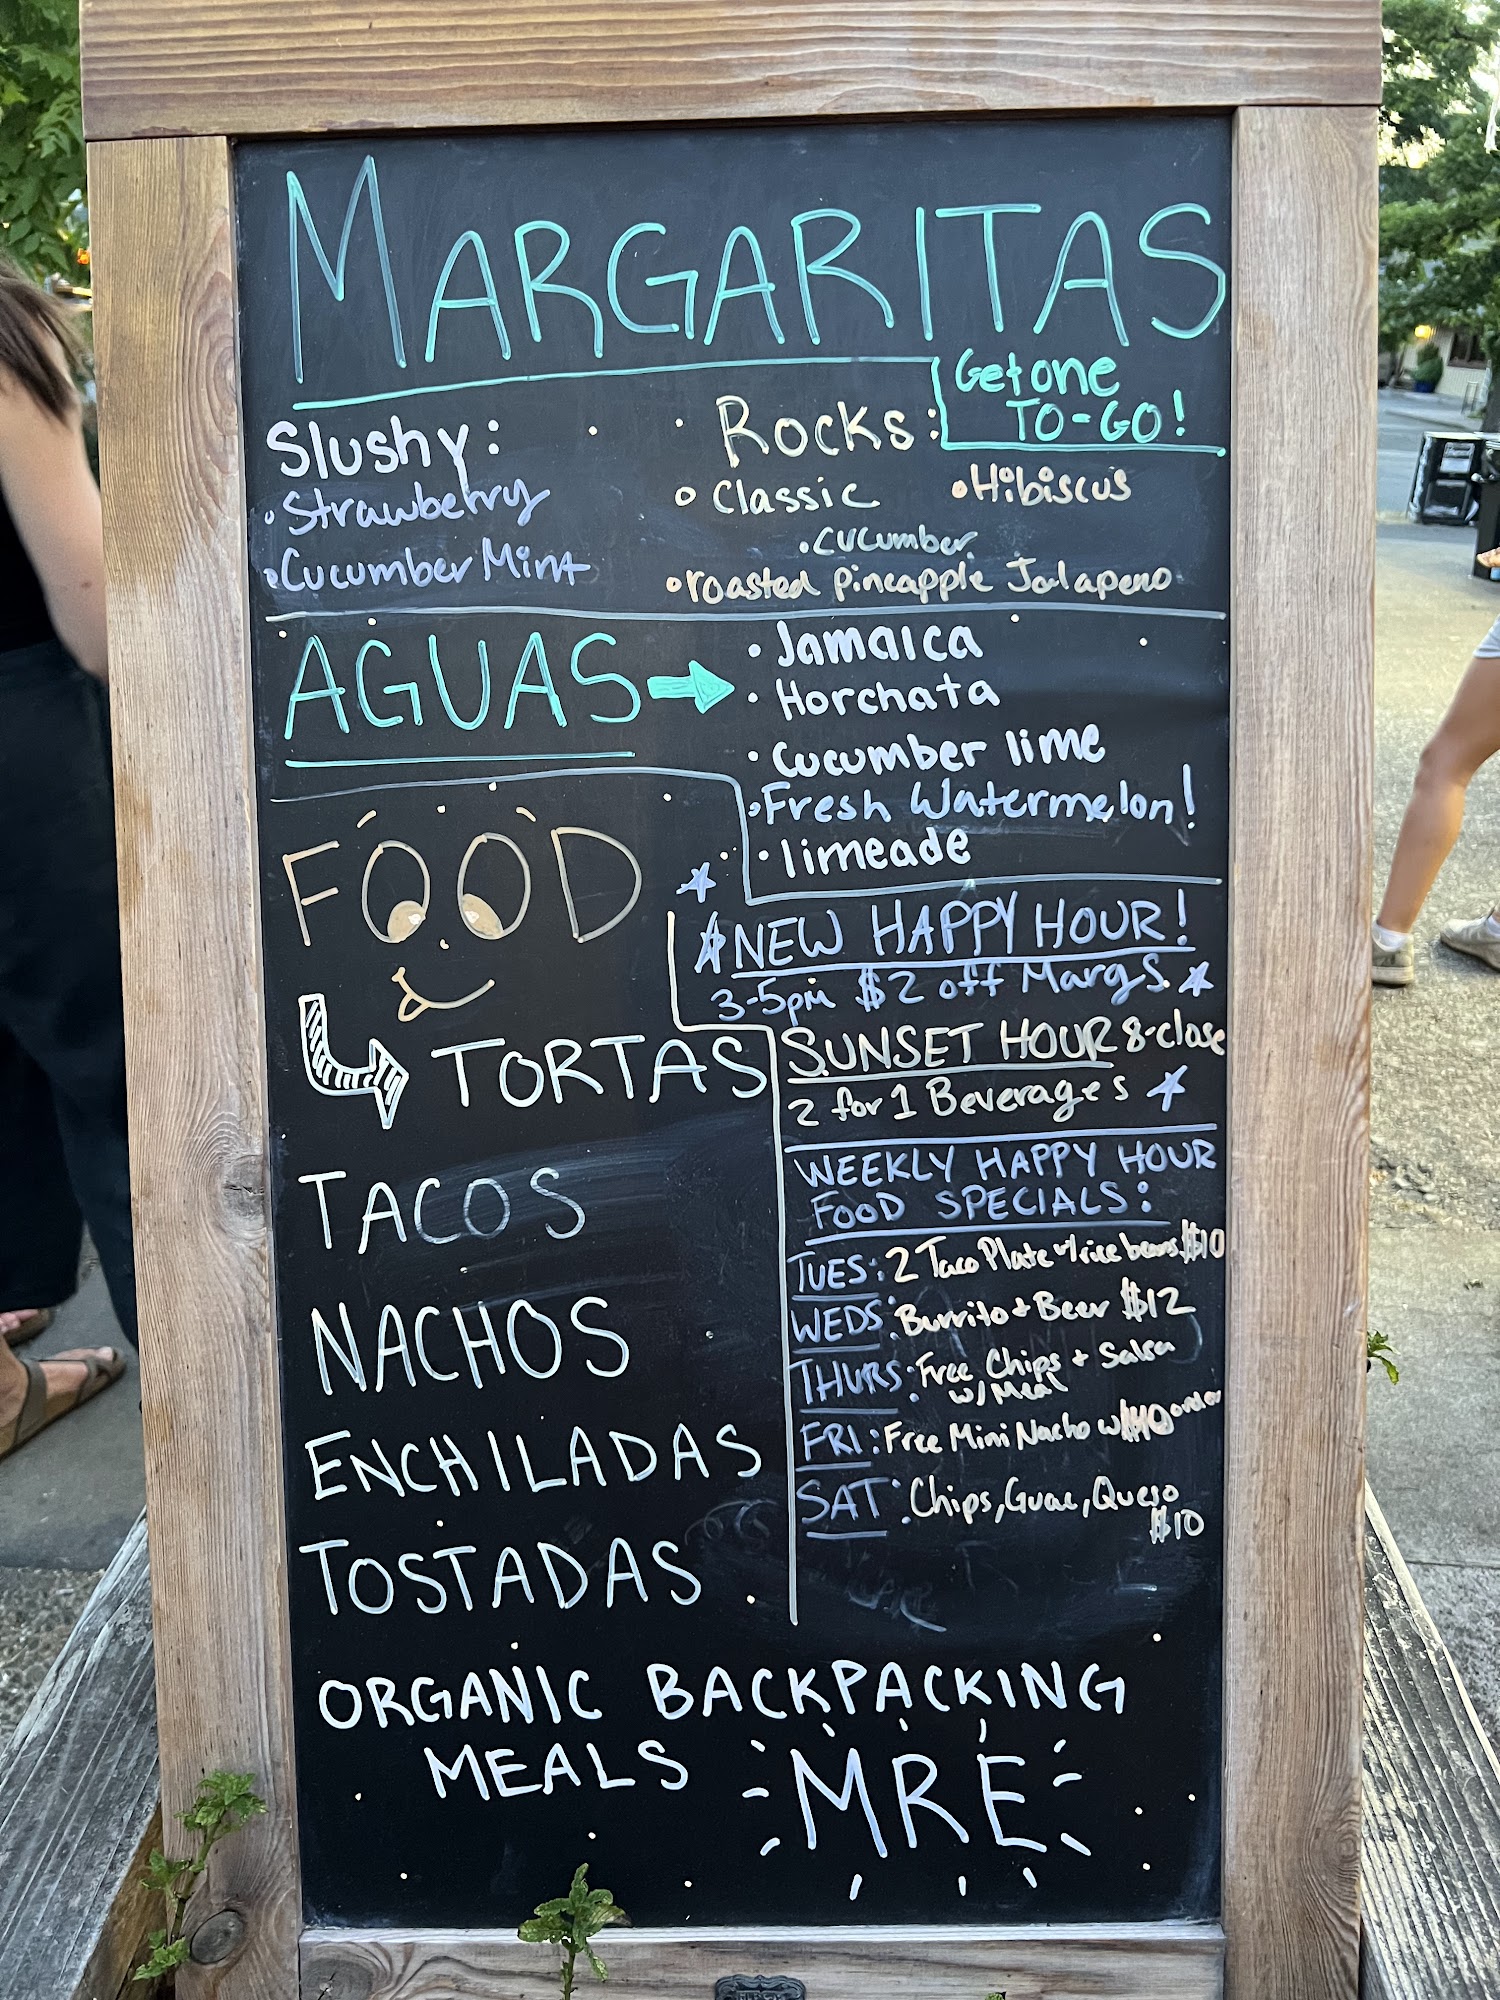 MARGARITAS
Get one
TO-GO!
Slushy:
• Strawberry
• Cucumber Mint
Rocks:
• Classic
• Hibiscus
• Cucumber
• roasted pineapple Jalapeno
AGUAS
• Jamaica
• Horchata
• Cucumber lime
• Fresh Watermelon!
• limeade
FOOD
TORTAS
TACOS
NACHOS
ENCHILADAS
TOSTADAS
NEW HAPPY HOUR!
3-5pm $2 off Margs
SUNSET HOUR 8-close
2 for 1 Beverages
WEEKLY HAPPY HOUR
FOOD SPECIALS:
TUES: 2 Taco Plate w/ rice beans $10
WEDS: Burrito + Beer $12
THURS: Free Chips + Salsa
w/ Meal
FRI: Free Mini Nacho w/ order
SAT: Chips, Guac, Queso
$10
ORGANIC BACKPACKING
MEALS
MRE